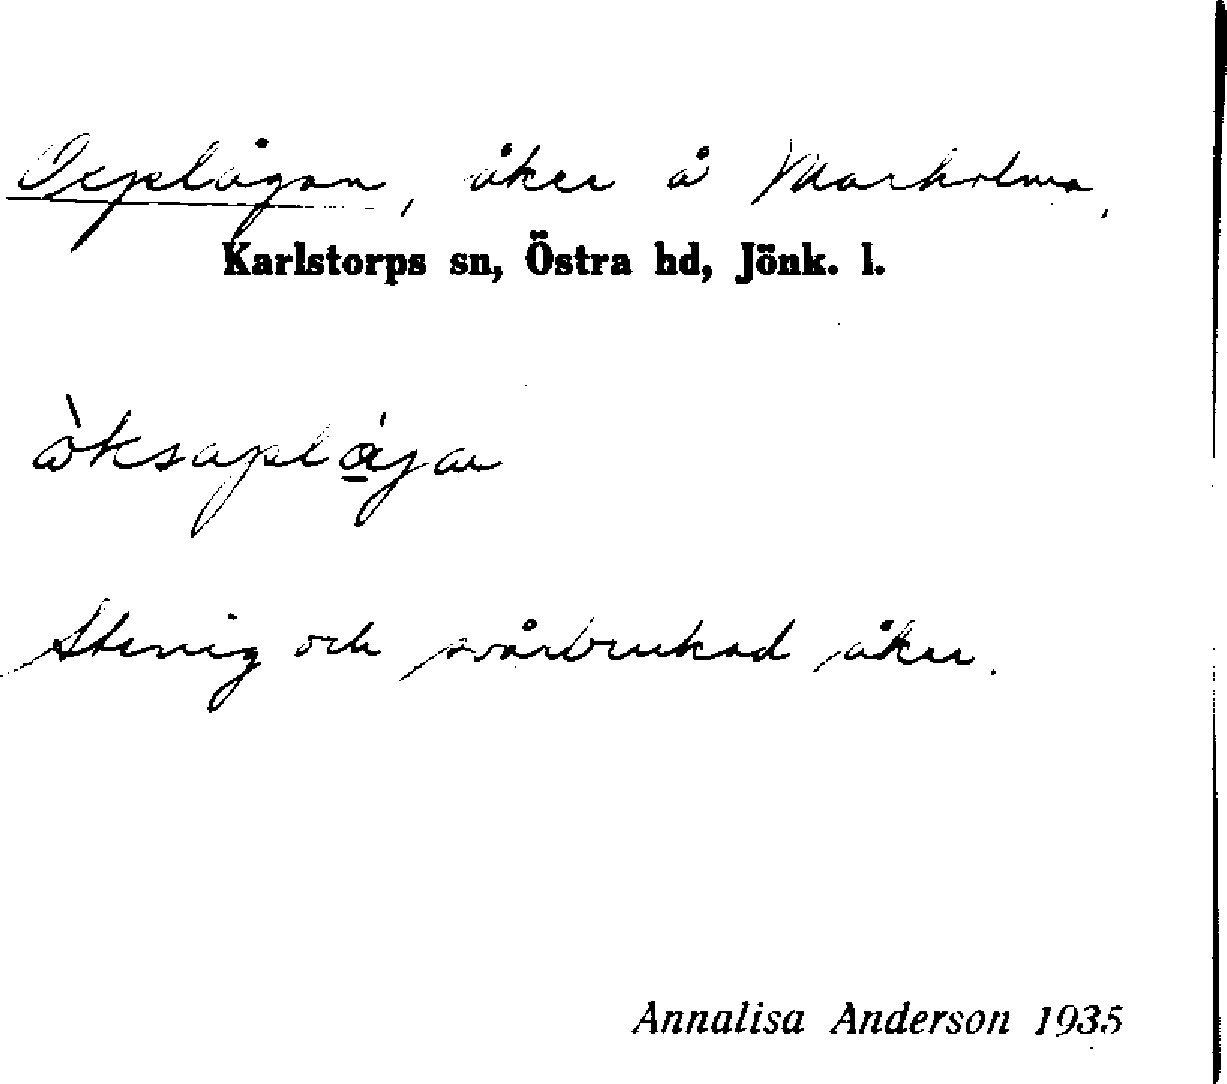 Oxplågan, åker å Marholma,
Karlstorps sn, Östra hd, Jönk. l.
Stenig och svårbrukad åker.
Annalisa Anderson 1935